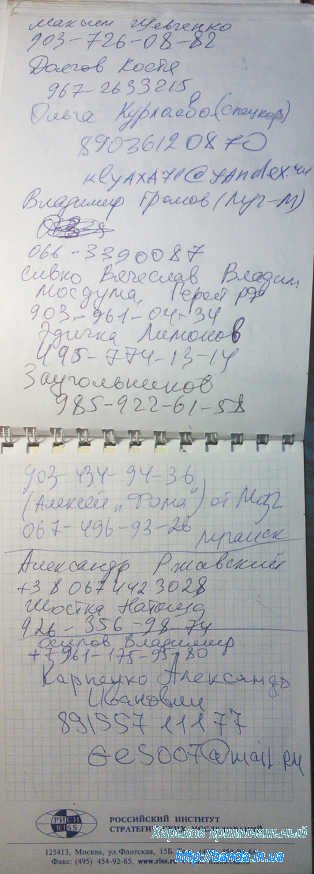 Максим Шевченко
903-726-08-82
Долгов Костя
967-2633215
Ольга Курлаева (спецкор)
89036120870
@yandex.ru
Владимир Громов (Луч-М)
066-3390087
Сивко Вячеслав Владим
Мосдума, Герой РФ
903-961-04-34
Эдичка Лимонов
495-774-13-14
Заугольников
985-922-61-58
903-434-94-36
(Алексей "Фома") от
067-496-93-26
Луганск
Александр Ржавский
+38 067 442 3028
Шостка Наталья
926-356-98-74
Владимир
+7961-175-95-80
Карпенко Александр
Иванович
89155711177
@mail.ru
РОССИЙСКИЙ ИНСТИТУТ
СТРАТЕГИ
125413, Москва, ул.Флотская, 15Б
Факс: (495) 454-92-65, www.riss.ru
http://banda.in.ua